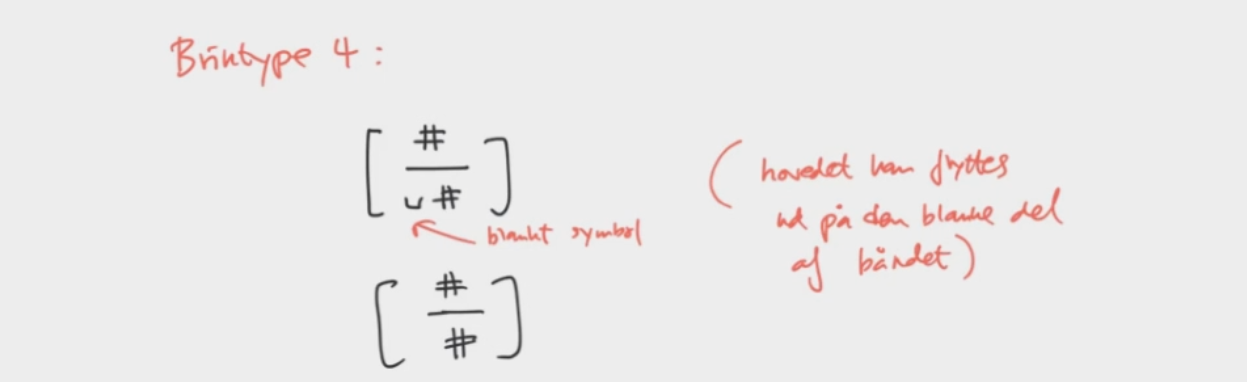 Briktype 4:
[ # / ␣# ]
blankt symbol
[ # / # ]
(hovedet kan flyttes
ud på den blanke del
af båndet)